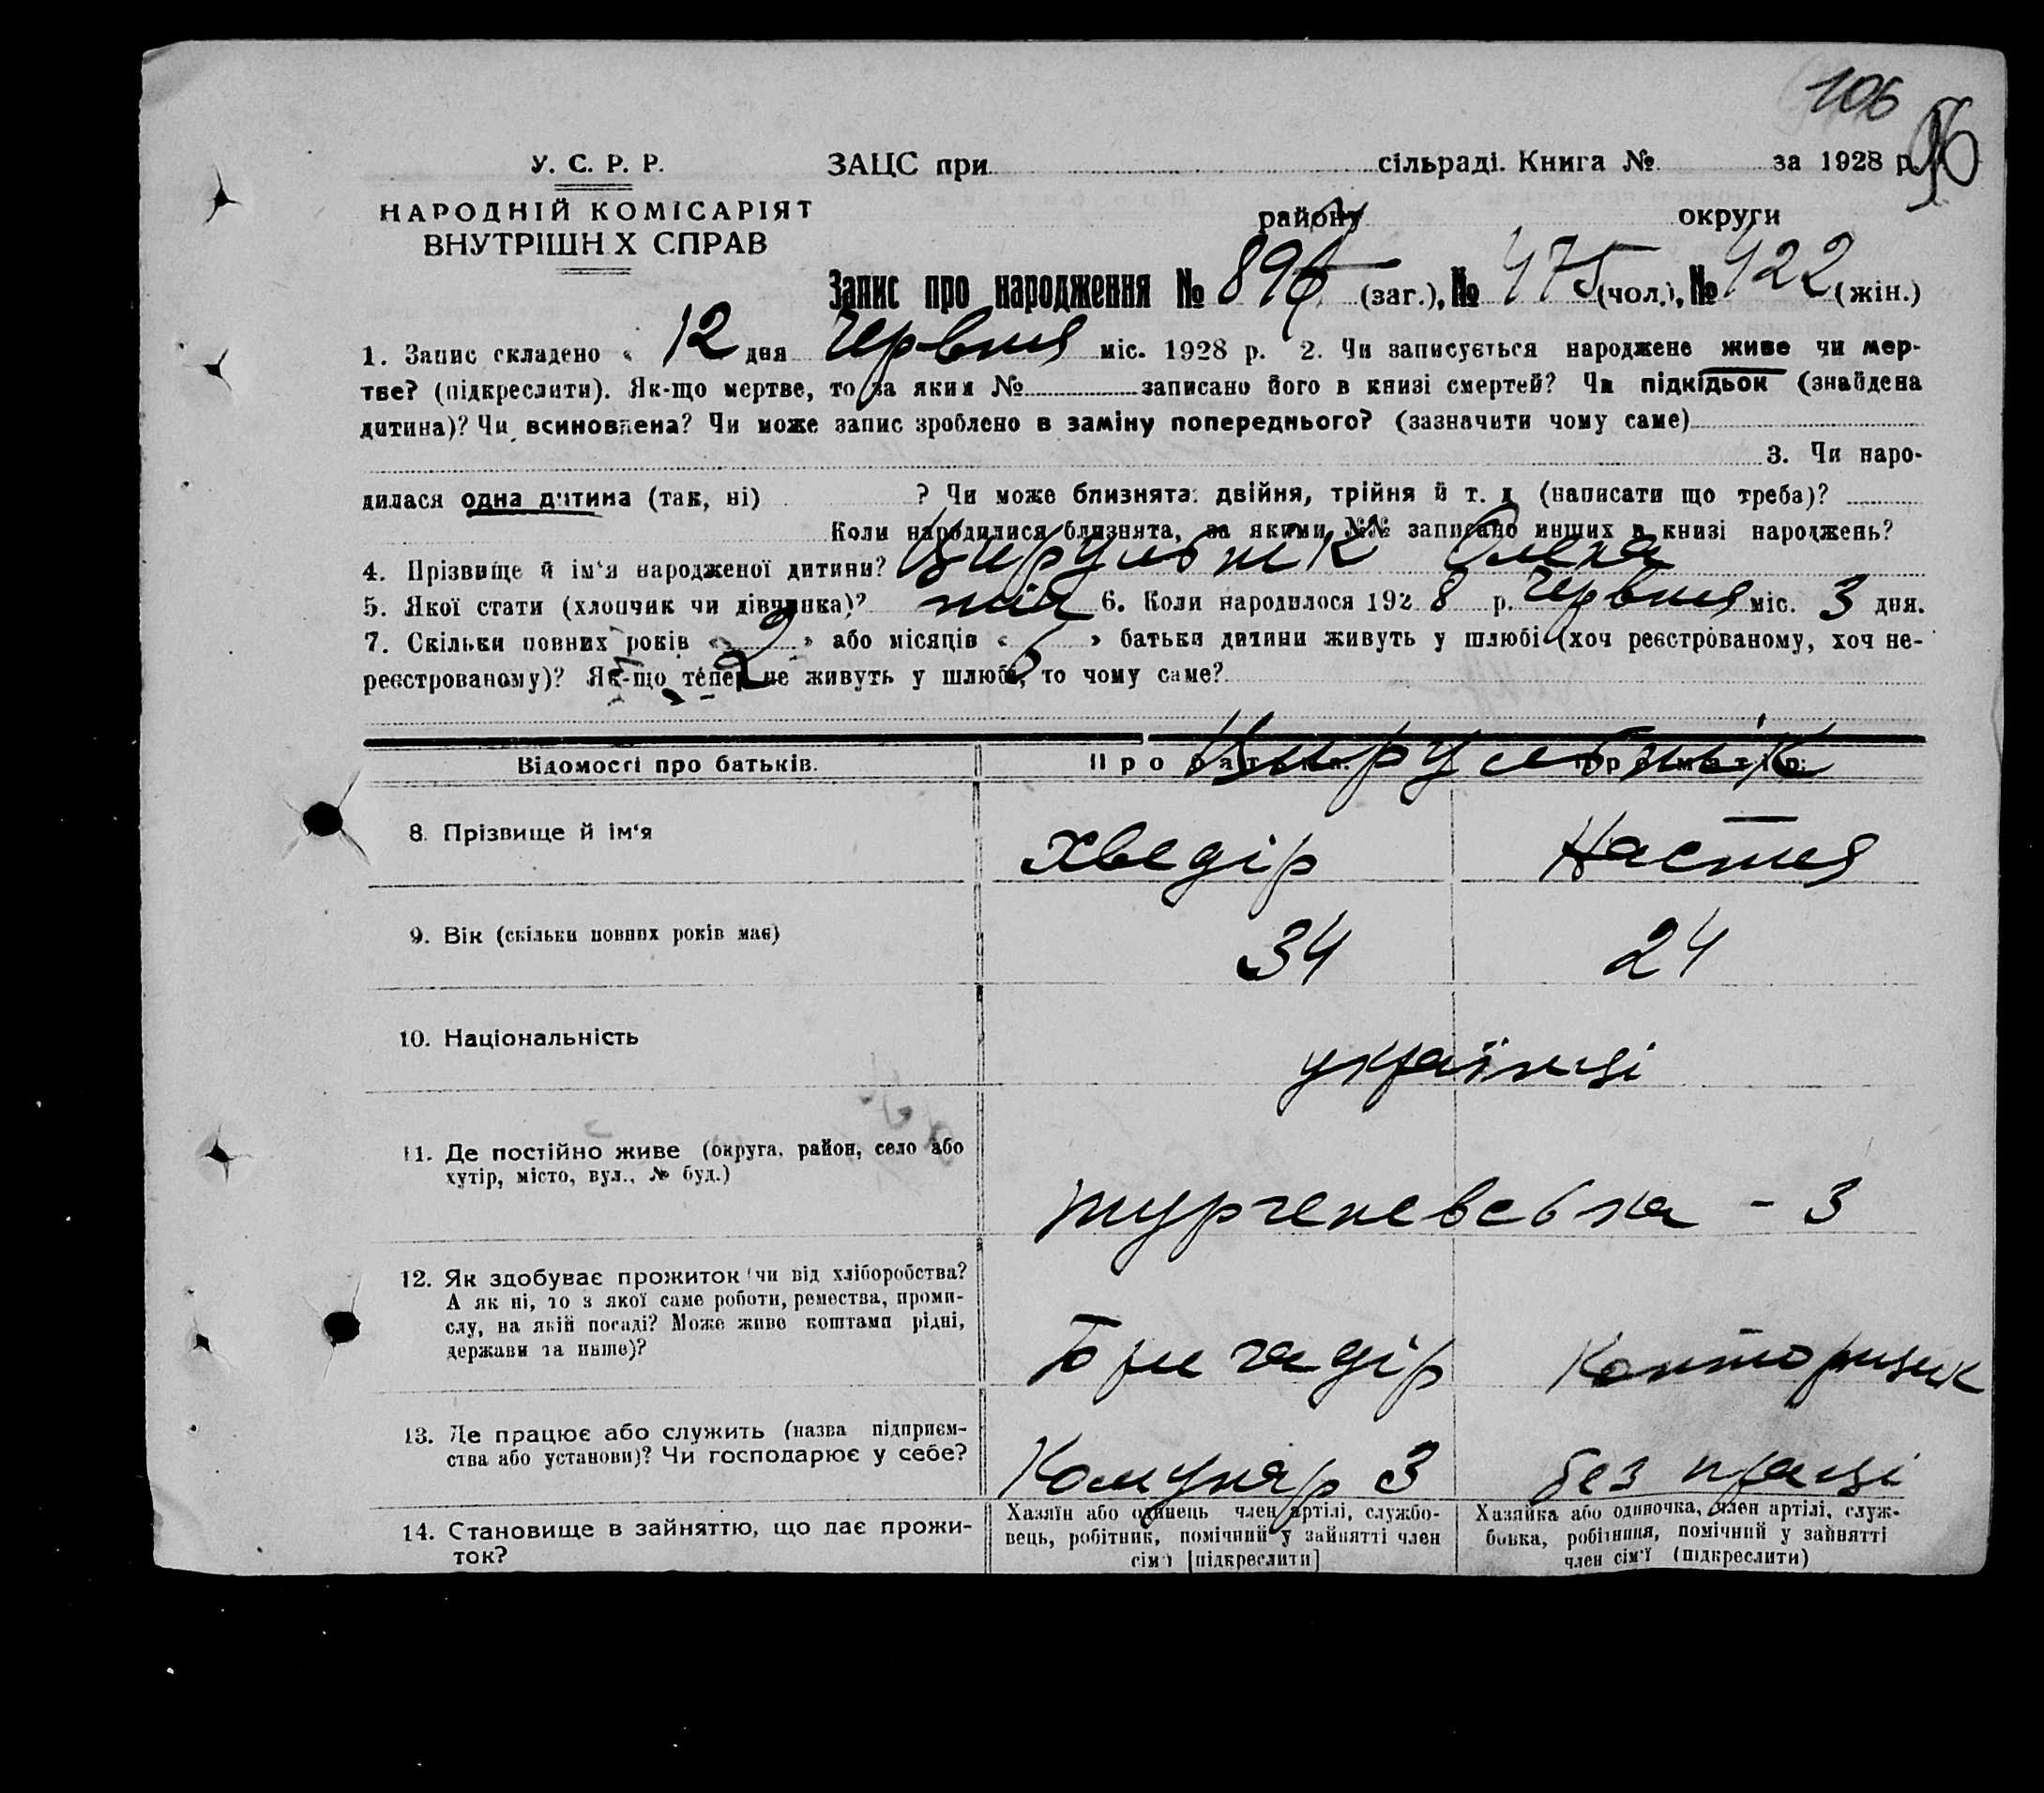 106
96
У. С. Р. Р.
НАРОДНІЙ КОМІСАРІЯТ
ВНУТРІШН Х СПРАВ
ЗАЦС при сільраді. Книга № за 1928 р.
району округи
Запис про народження № 896 (заг.), № 475 (чол.), № 422 (жін.)
1. Запис складено « 12 дня Червня міс. 1928 р. 2. Чи записується народжене живе чи мер-
тве? (підкреслити). Як-що мертве, то за яким № записано його в книзі смертей? Чи підкідьок (знайдена
дитина)? Чи всиновлена? Чи може запис зроблено в заміну попереднього? (зазначити чому саме)
3. Чи наро-
дилася одна дитина (так, ні) ? Чи може близнята: двійня, трійня й т. д (написати що треба)?
Коли народилися близнята, за якими №№ записано инших в книзі народжень?
4. Прізвище й ім'я народженої дитини? Цирульник
5. Якої стати (хлопчик чи дівчинка)? 6. Коли народилося 1928 р. Червня міс. 3 дня.
7. Скільки повних років « 2 » або місяців « » батьки дитини живуть у шлюбі (хоч реєстрованому, хоч не-
реєстрованому)? Як-що тепер не живуть у шлюбі, то чому саме?
Відомості про батьків. Про батька. Про матір.
Цирульник
8. Прізвище й ім'я Хведір Настя
9. Вік (скільки повних років має) 34 24
10. Національність українці
11. Де постійно живе (округа, район, село або
хутір, місто, вул., № буд.)
тургеневська - 3
12. Як здобуває прожиток чи від хліборобства?
А як ні, то з якої саме роботи, ремества, проми-
слу, на якій посаді? Може живе коштами рідні,
держави та инше)?
Бригадір Конторщик
13. Де працює або служить (назва підприєм-
ства або установи)? Чи господарює у себе?
Комунар 3 без праці
14. Становище в зайняттю, що дає прожи-
ток?
Хазяїн або одинець член артілі, службо-
вець, робітник, помічний у зайнятті член
сім'ї [підкреслити]
Хазяйка або одиночка, член артілі, служ-
бовка, робітниця, помічний у зайнятті
член сім'ї (підкреслити)